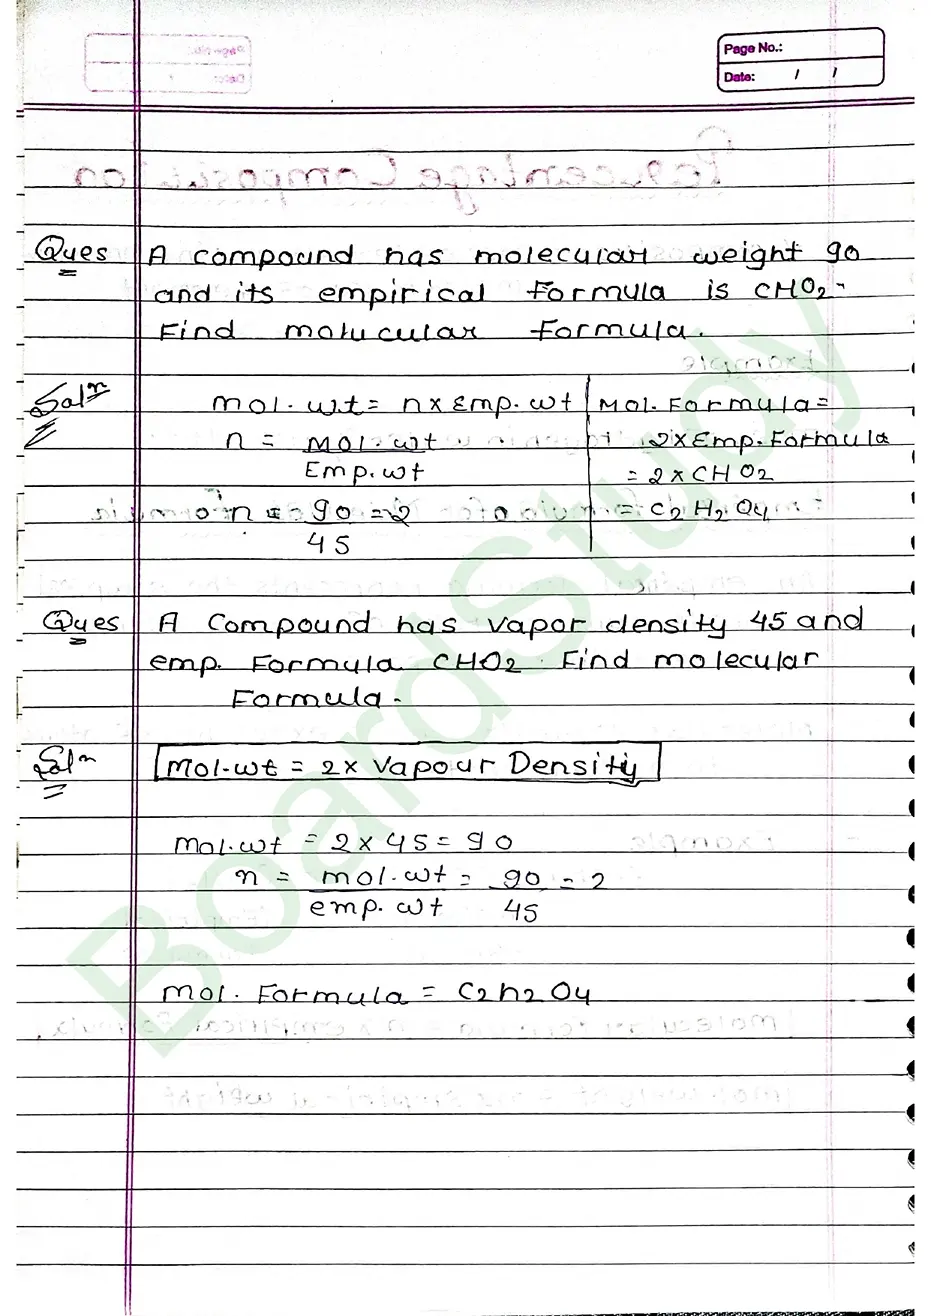 Page No.:
Date: / /
Ques A compound has molecular weight 90
and its empirical Formula is CHO2.
Find molucular Formula.
Solⁿ mol. wt = n x Emp. wt
n = Mol. wt / Emp. wt
n = 90 / 45 = 2
Mol. Formula =
2 x Emp. Formula
= 2 x CHO2
= C2 H2 O4
Ques A Compound has vapor density 45 and
emp. Formula CHO2. Find molecular
Formula.
Solⁿ Mol. wt = 2x Vapour Density
mol. wt = 2 x 45 = 90
n = mol. wt / emp. wt = 90 / 45 = 2
mol. Formula = C2h2O4
BoardStudy